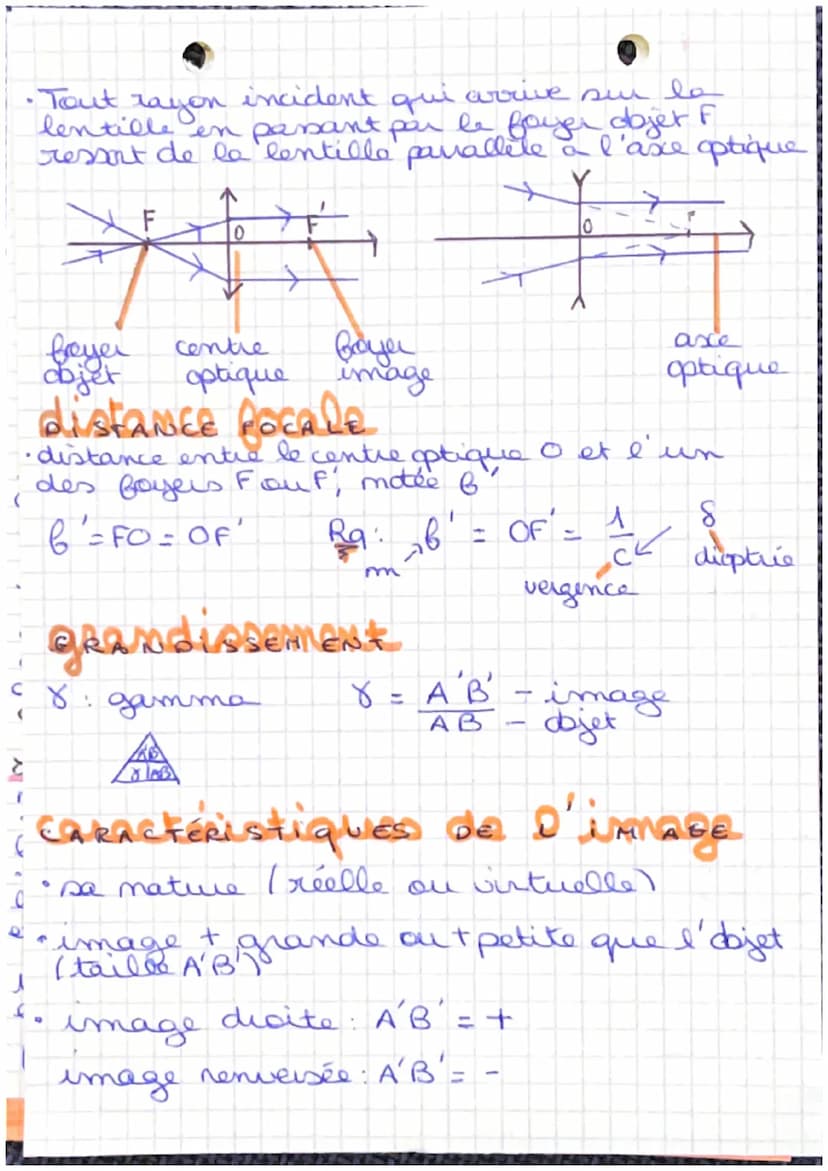 • Tout rayon incident qui arrive sur la
lentille en passant par le foyer objet F
ressort de la lentille parallèle à l'axe optique
F O F'
O F
foyer objet
centre optique
foyer image
axe optique
DISTANCE FOCALE
• distance entre le centre optique O et l'un
des foyers F ou F', notée f'
f' = FO = OF' Rq: f' = OF' = 1/C δ
m vergence dioptrie
GRANDISSEMENT
γ : gamma γ = A'B' / AB - image - objet
γ | AB
CARACTÉRISTIQUES DE L'IMAGE
• sa nature (réelle ou virtuelle)
• image + grande ou + petite que l'objet
(taille A'B')
• image droite : A'B' = +
image renversée : A'B' = -